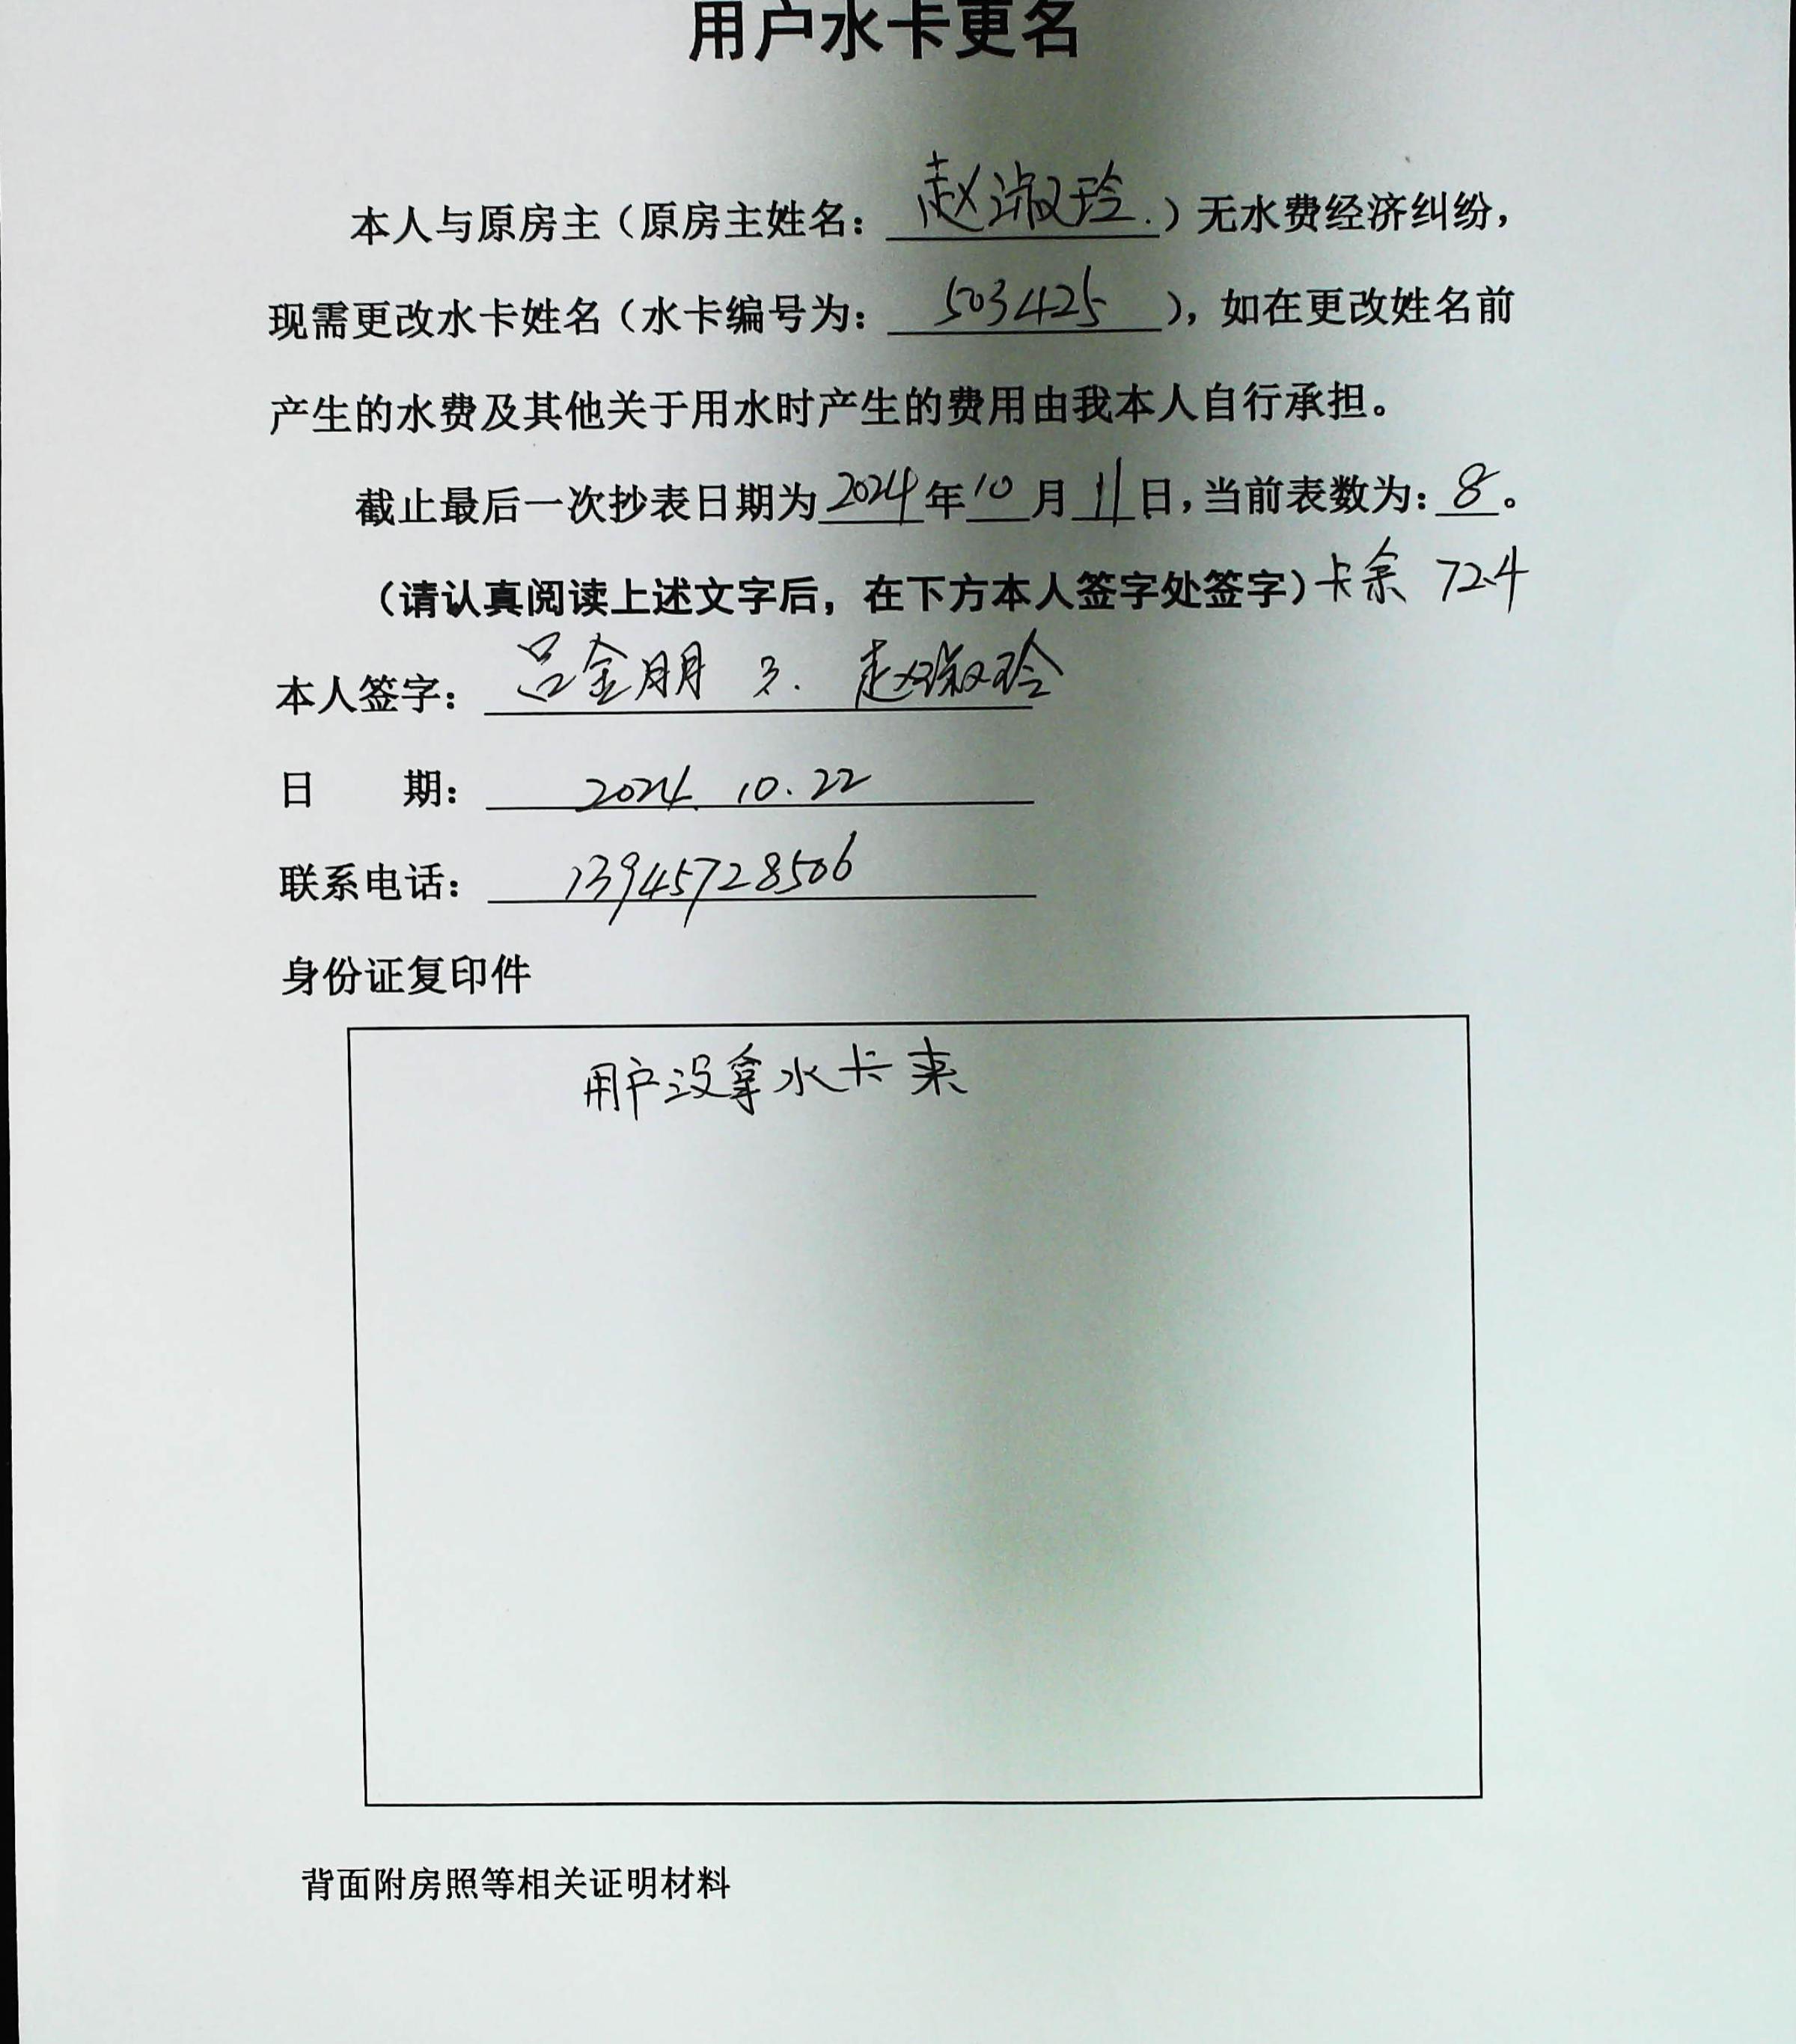 用户水卡更名
本人与原房主（原房主姓名：赵淑玲.）无水费经济纠纷，
现需更改水卡姓名（水卡编号为：503425），如在更改姓名前
产生的水费及其他关于用水时产生的费用由我本人自行承担。
截止最后一次抄表日期为2024年10月11日，当前表数为：8。
（请认真阅读上述文字后，在下方本人签字处签字）卡余 724
本人签字：吕金朋 赵淑玲
日 期：2024.10.22
联系电话：13945728506
身份证复印件
用户没拿水卡来
背面附房照等相关证明材料